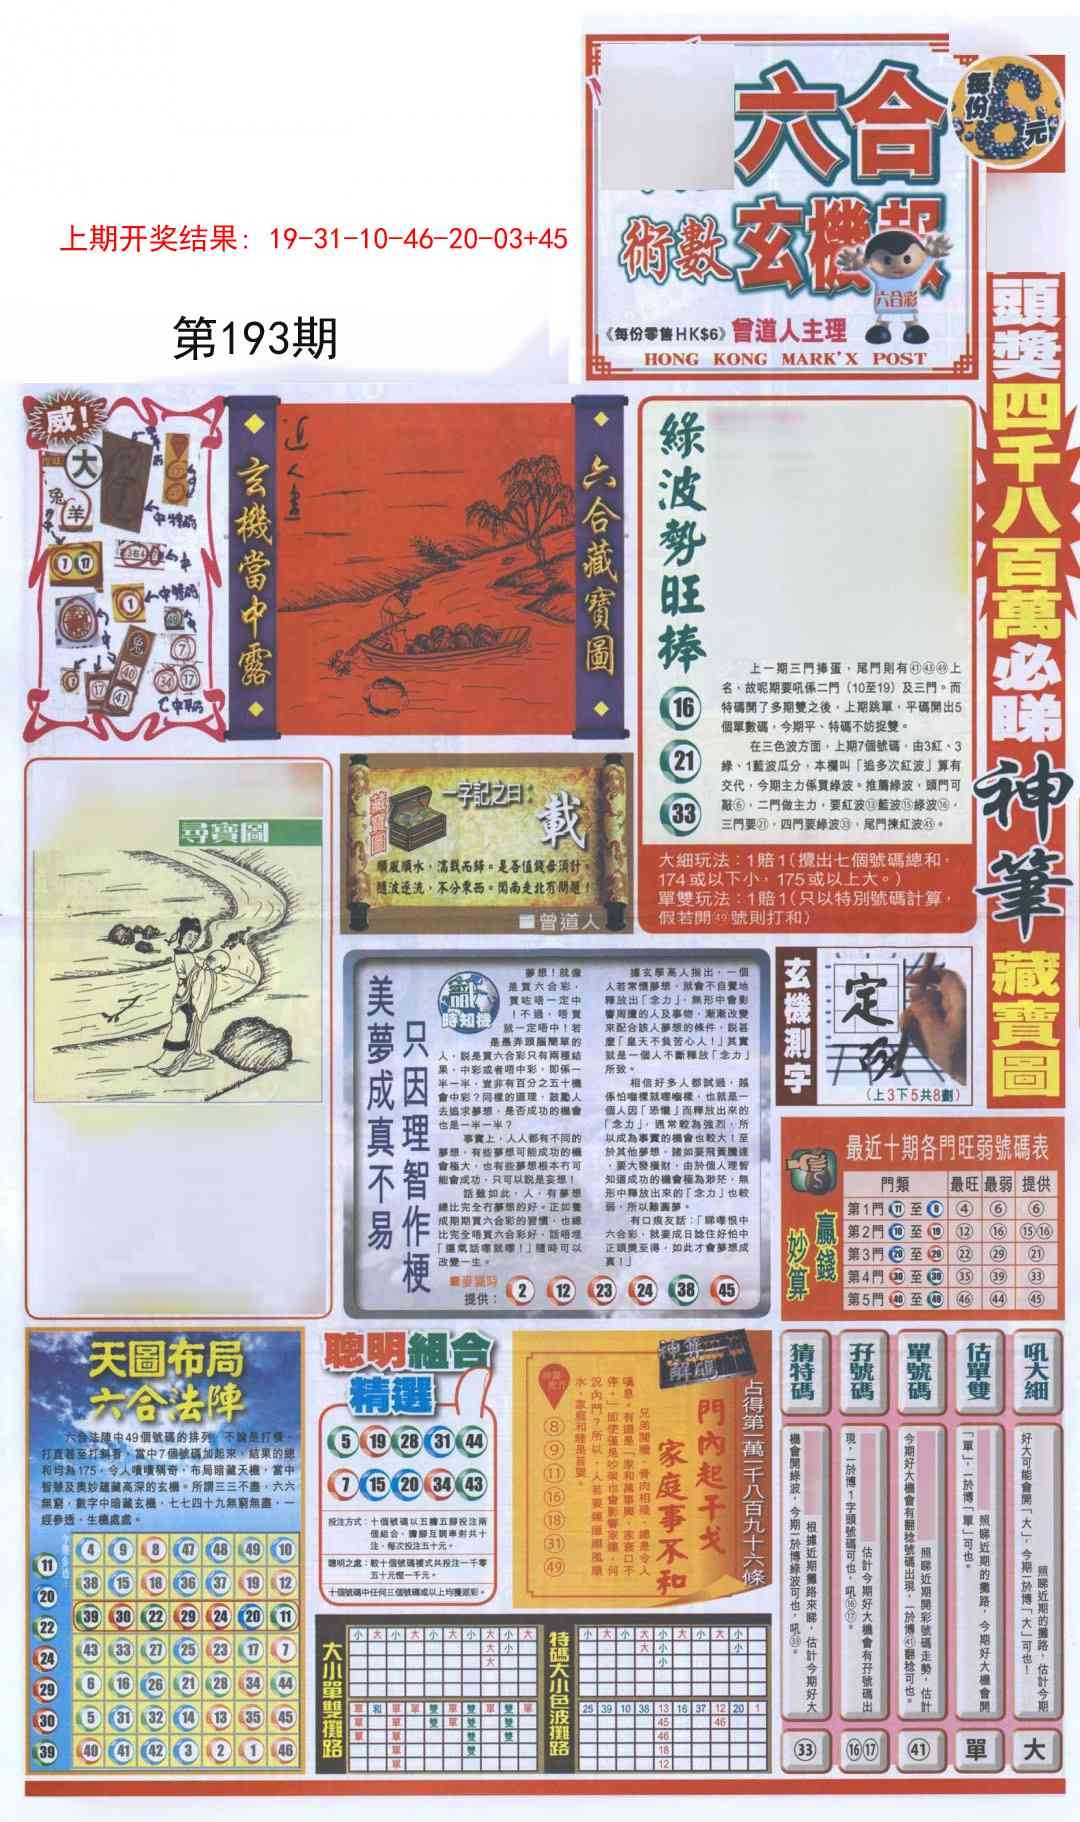 六合
術數玄機報
每份6元
《每份零售HK$6》曾道人主理
HONG KONG MARK'X POST
上期开奖结果: 19-31-10-46-20-03+45
第193期
頭獎四千八百萬必睇神筆藏寶圖
威!
大
兔
羊
玄機當中露
六合藏寶圖
綠波勢旺捧
16
21
33
上一期三門捧蛋，尾門則有㊶㊸㊾上
名，故呢期要吼係二門（10至19）及三門。而
特碼開了多期雙之後，上期跳單，平碼開出5
個單數碼，今期平、特碼不妨捉雙。
在三色波方面，上期7個號碼，由3紅、3
綠、1藍波瓜分，本欄叫「追多次紅波」算有
交代，今期主力係買綠波。推薦綠波，頭門可
敲⑥，二門做主力，要紅波⑬藍波⑮綠波⑯，
三門要㉑，四門要綠波㉝，尾門揀紅波㊺。
大細玩法：1賠1（攪出七個號碼總和，
174或以下小，175或以上大。）
單雙玩法：1賠1（只以特別號碼計算，
假若開㊾號則打和）
尋寶圖
藏寶圖
一字記之曰：載
順風順水，滿載而歸。是否值錢毋須計。
隨波逐流，不分東西。闖南走北有問題！
曾道人
美夢成真不易
只因理智作梗
時知機
夢想！就像
是買六合彩，
買咗唔一定中
！不過，唔買
就一定唔中！若
是愚弄頭腦簡單的
人，說是買六合彩只有兩種結
果，中彩或者唔中彩，即係一
半一半，豈非有百分之五十機
會中彩？同樣的道理，鼓勵人
去追求夢想，是否成功的機會
也是一半一半？
事實上，人人都有不同的
夢想，有些夢想可能成功的機
會極大，也有些夢想根本冇可
能會成功，只可以說是妄想！
話雖如此，人，有夢想
總比完全冇夢想的好。正如養
成期期買六合彩的習慣，也總
比完全唔買六合彩好，話唔埋
「運氣話嚟就嚟！」隨時可以
改變一生。
據玄學高人指出，一個
人若常懷夢想，就會不自覺地
釋放出「念力」，無形中會影
響周遭的人及事物，漸漸改變
來配合該人夢想的條件，説甚
麼「皇天不負苦心人！」其實
就是一個人不斷釋放「念力」
所致。
相信好多人都試過，越
係怕嗰樣就嚟嗰樣，也就是一
個人因「恐懼」而釋放出來的
「念力」，通常較為強烈，所
以成為事實的機會也較大！至
於其他夢想，諸如要飛黃騰達
，要大發橫財，由於個人理智
知道成功的機會極為渺茫，無
形中釋放出來的「念力」也較
弱，所以難圓夢。
有口痕友話：「睇嚟恨中
六合彩，就要成日諗住好怕中
正頭獎至得，如此才會夢想成
真！」
提供：2 12 23 24 38 45
玄機測字
定
（上3下5共8劃）
最近十期各門旺弱號碼表
贏錢妙算
門類 最旺 最弱 提供
第1門 至 ④ ⑥ ⑥
第2門 10 至 19 ⑫ ⑯ ⑮⑯
第3門 20 至 29 ㉒ ㉙ ㉑
第4門 30 至 39 ㉟ ㊴ ㉝
第5門 40 至 49 ㊻ ㊹ ㊺
天圖布局
六合法陣
六合法陣中49個號碼的排列，不論是打橫、
打直甚至打斜看，當中7個號碼加起來，結果的總
和均為175，令人嘖嘖稱奇，布局暗藏天機，當中
智慧及奧妙蘊藏高深的玄機。所謂三三不盡，六六
無窮，數字中暗藏玄機，七七四十九無窮無盡，一
經參透，生機處處。
11 20 22 24 29 30 39
4 9 8 47 48 49 10
38 15 18 36 37 19 12
39 30 22 29 24 20 11
43 33 27 25 23 17 7
6 16 26 21 28 34 44
5 31 32 14 13 35 45
40 41 42 3 2 1 46
聰明組合
精選
5 19 28 31 44
7 15 20 34 43
投注方式：十個號碼以五膽五腳投注兩
個組合，膽腳互調串對共十
注，每次投注五十元。
聰明之處：較十個號碼複式共投注一千零
五十元慳一千元。
十個號碼中任何三個號碼或以上均獲派彩。
神算解碼
占得第一萬二千八百九十六條
門內起干戈
家庭事不和
兄弟鬩牆，骨肉相殘，總是令人
嘆息。有道是「家和萬事興，家衰口不
停。」即使僅是吵架也會影響家運，何
況內鬥？所以，人若要運順風順
水，家庭和睦是首要。
⑧ ⑨ ⑪ ⑯ ⑱ ㉛ ㊾
大小單雙攤路
特碼大小色波攤路
25 39 10 38 13 16 37 12 20 1
45 46
46
18
12
猜特碼
根據近期攤路來睇，估計今期好大
機會開綠波，今期一於博綠波可也，吼㉝。
㉝
孖號碼
估計今期好大機會有孖號碼出
現，一於博1字頭號碼可也。吼⑯⑰。
⑯⑰
單號碼
照睇近期開彩號碼走勢，估計
今期好大機會有翻稔號碼出現，一於博㊶翻稔可也。
㊶
估單雙
照睇近期的攤路，今期好大機會開
「單」，一於博「單」可也。
單
吼大細
照睇近期的攤路，估計今期
好大可能會開「大」，今期一於博「大」可也！
大